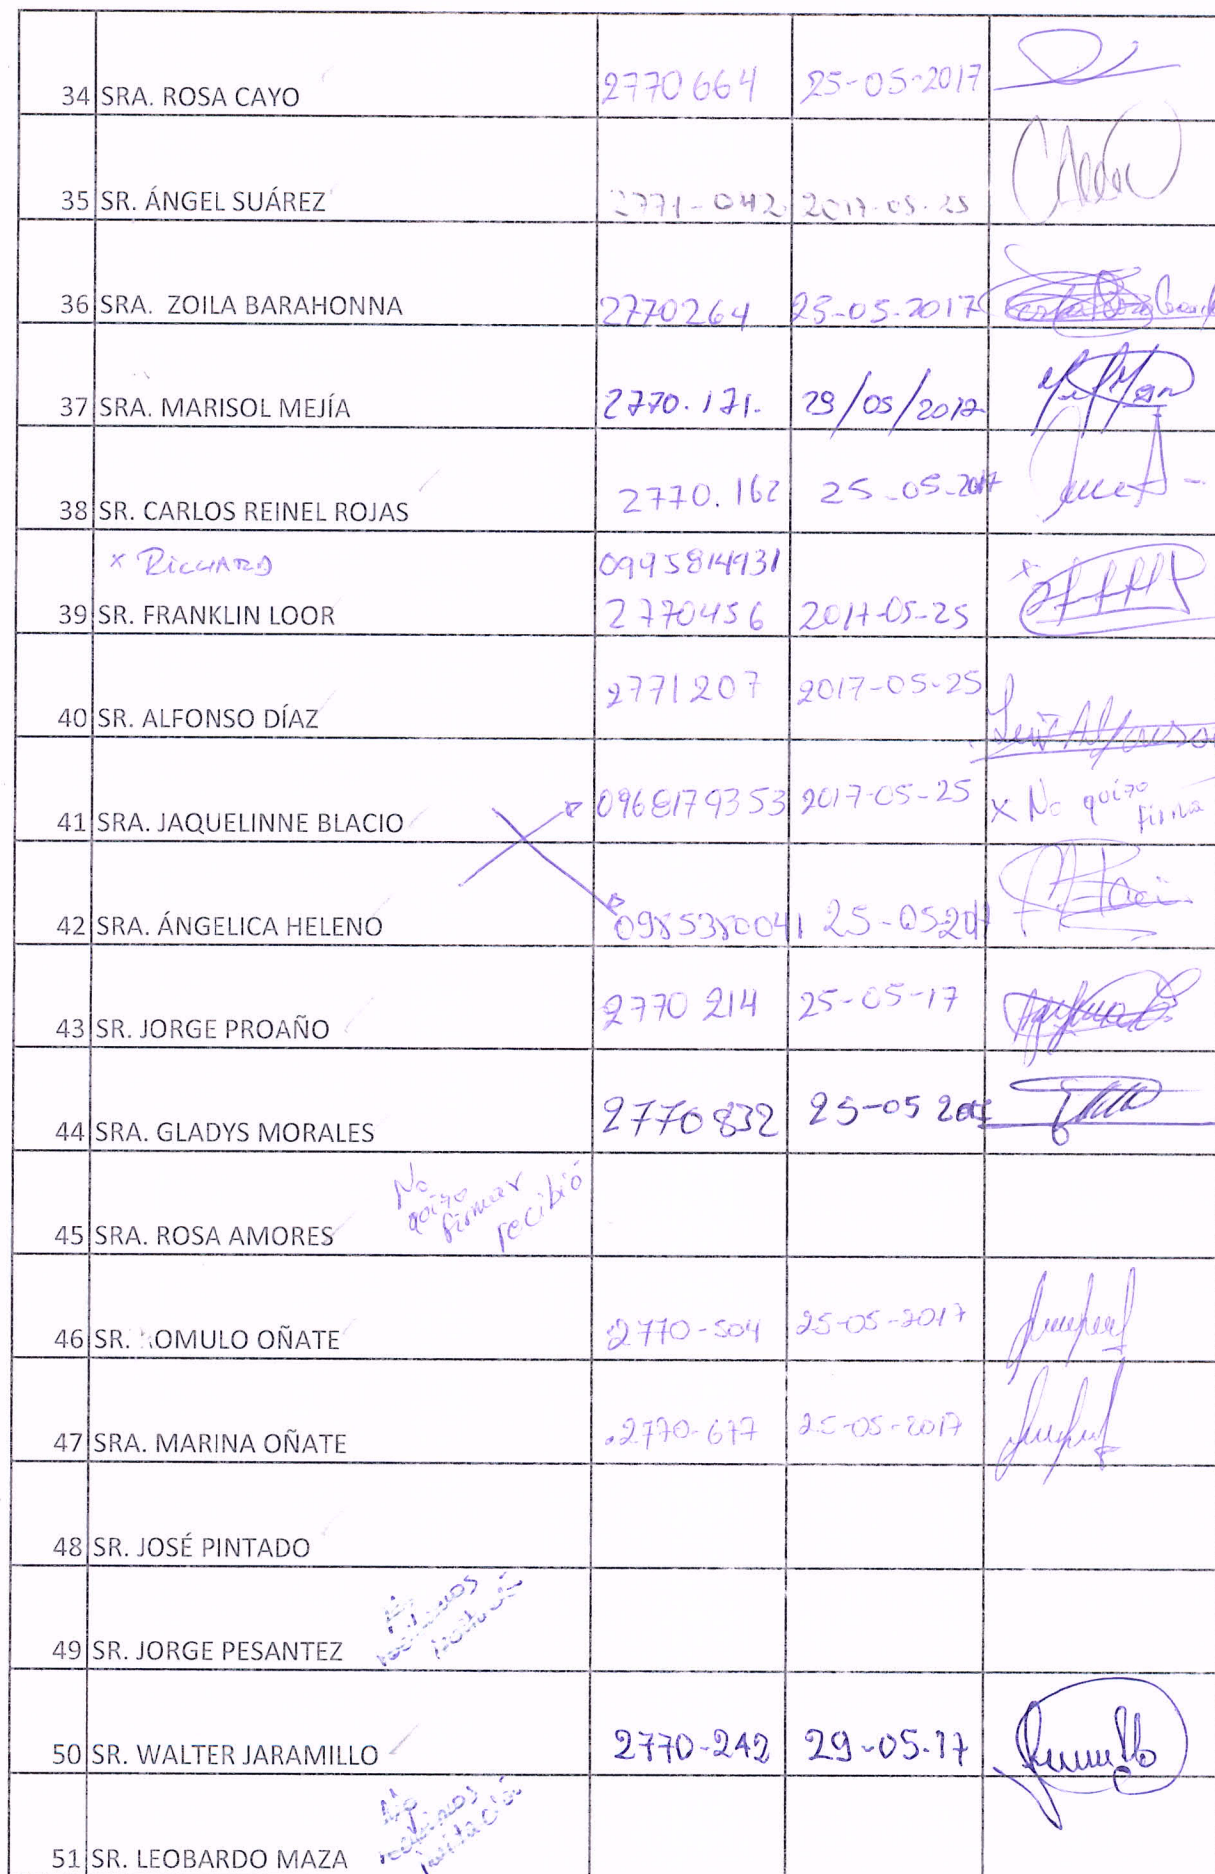 34 SRA. ROSA CAYO 2770664 25-05-2017
35 SR. ÁNGEL SUÁREZ 2771-042 2017-05-25
36 SRA. ZOILA BARAHONNA 2770264 25-05-2017
37 SRA. MARISOL MEJÍA 2770.171. 29/05/2017
38 SR. CARLOS REINEL ROJAS 2770.162 25-05-2017
x RICHARD 0995814931 x
39 SR. FRANKLIN LOOR 2770456 2017-05-25
40 SR. ALFONSO DÍAZ 2771207 2017-05-25 Luis Alfonso
41 SRA. JAQUELINNE BLACIO 0968179353 2017-05-25 x No quizo firma
42 SRA. ÁNGELICA HELENO 0985380041 25-05-201
43 SR. JORGE PROAÑO 2770 214 25-05-17
44 SRA. GLADYS MORALES 2770832 25-05
No quizo firmar recibió
45 SRA. ROSA AMORES
46 SR. ROMULO OÑATE 2770-504 25-05-2017
47 SRA. MARINA OÑATE 2770-677 25-05-2017
48 SR. JOSÉ PINTADO
No
49 SR. JORGE PESANTEZ
50 SR. WALTER JARAMILLO 2770-242 29-05-17
No
51 SR. LEOBARDO MAZA